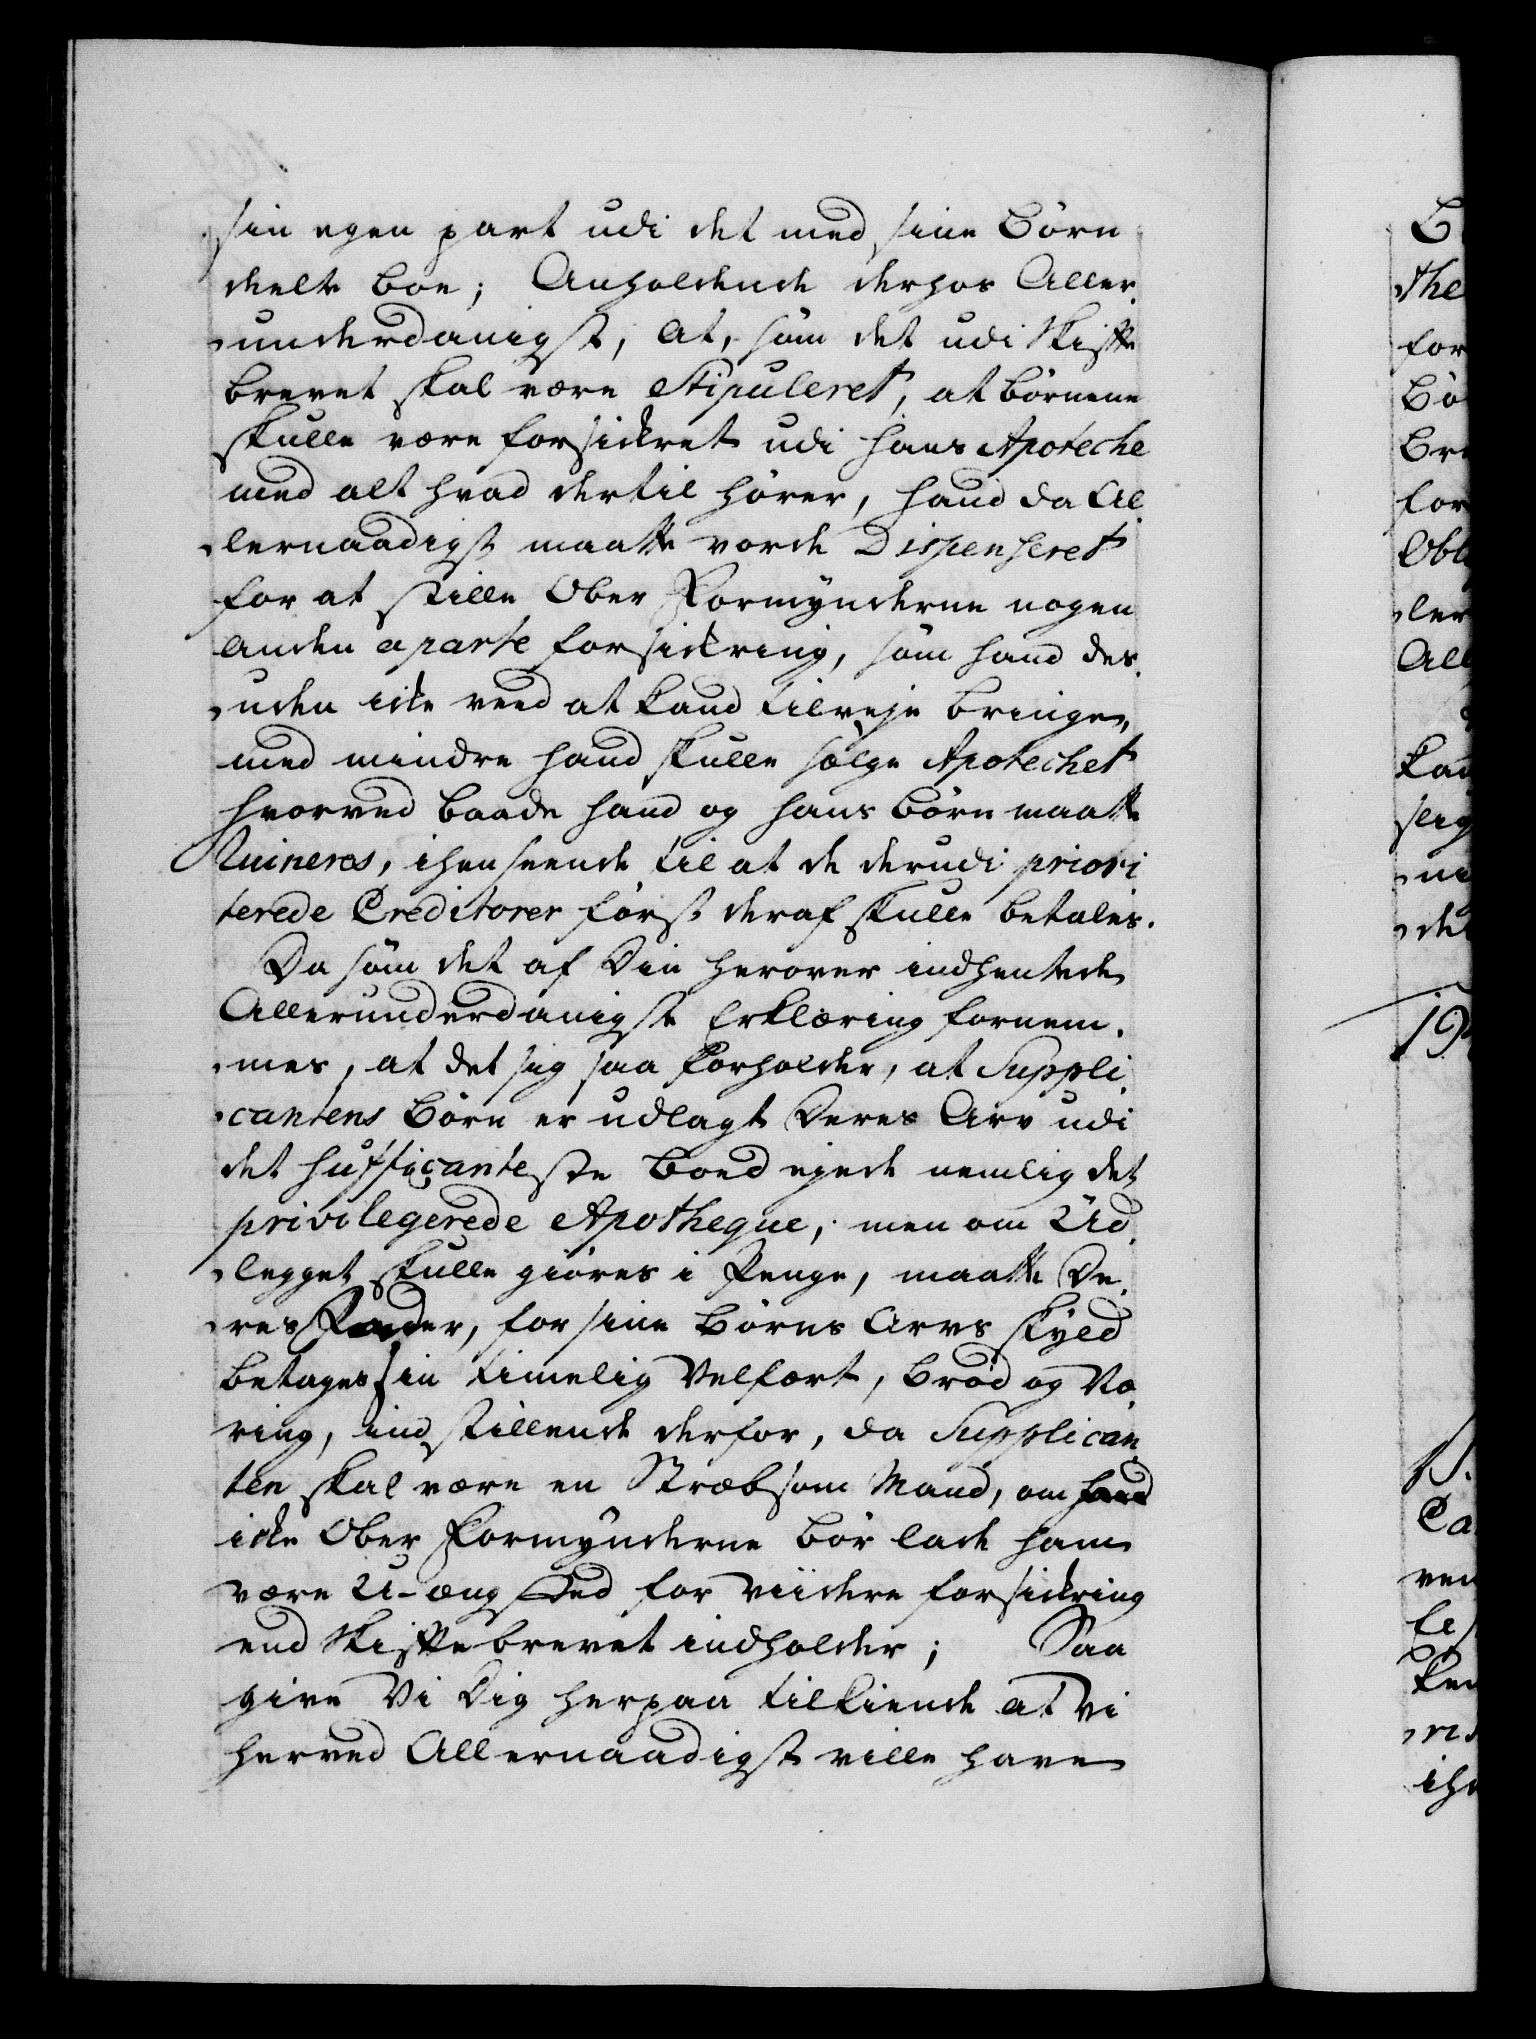 sin egen part udi det med sine Børn
deelte Boe; Anholdende derhos Aller
underdanigst, at, som det udi Skifte
brevet skal være Stipuleret, at børnene
skulle være forsickret udi hans Apoteche
med alt hvad dertil hører, hand da Al
lernaadigst maatte vorde Dispenseret
for at stille Ober Formynderne nogen
anden aparte forsickring, som hand des
uden icke veed at kand tilveje bringe,
med mindre hand skulle sælge Apotechet
hvorved baade hand og hans Børn maatte
Ruineres, ihenseende til at de derudi priori
terede Creditorer først deraf skulle betales.
Da som det af Din herover indhentede
Allerunderdanigste Erklæring fornem
mes, at det sig saa forholder, at Suppli
cantens Børn er udlagt Deres Arv udi
det sufficanteste Boed ejede nemlig det
privilegerede Apotheque, men om Ud
legget skulle giøres i Penge, maatte De
res Fader, for sine Børns Arvs skyld
betages sin timelig Velfært, Brød og Næ
ring, indstillende derfor, da Supplican
ten skal være en Stræbsom Mand, om
icke Ober Formynderne bør lade ham
være U-ængsted for viidere forsickring
end Skiftebrevet indholder; Saa
give Vi Dig herpaa tilkiende at Vi
herved Allernaadigst ville have